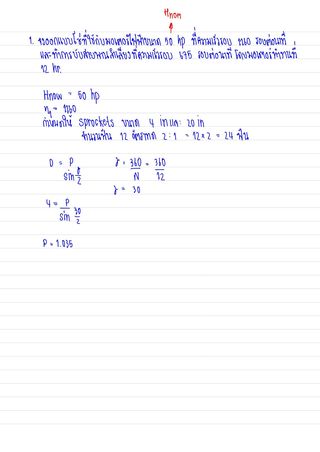 Hnom
1. จงออกแบบโซ่ที่ใช้กับมอเตอร์ไฟฟ้าขนาด 50 hp ที่ความเร็วรอบ 1160 รอบต่อนาที
และทำการขับสายพานลำเลียงที่ความเร็วรอบ 675 รอบต่อนาที โดยมอเตอร์ทำงานที่
12 hr.
Hnom = 50 hp
n = 1160
กำหนดให้ Sprockets ขนาด 4 in และ 20 in
จำนวนฟัน 12 อัตราทด 2:1 = 12×2 = 24 ฟัน
D = P / sin γ/2    γ = 360/N = 360/12
γ = 30
4 = P / sin 30/2
P = 1.035